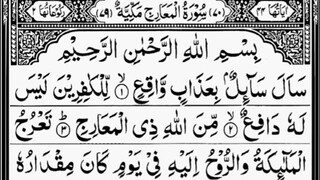 اٰیَاتُهَا ٤٤ (٧٠) سُوْرَةُ الْمَعَارِجِ مَكِّیَّةٌ (٧٩) رُكُوْعَاتُهَا ٢
بِسْمِ اللّٰهِ الرَّحْمٰنِ الرَّحِیْمِ
سَاَلَ سَآىِٕلٌۢ بِعَذَابٍ وَّاقِعٍ ۙ﴿١﴾ لِّلْكٰفِرِیْنَ لَیْسَ
لَهٗ دَافِعٌ ۙ﴿٢﴾ مِّنَ اللّٰهِ ذِی الْمَعَارِجِ ؕ﴿٣﴾ تَعْرُجُ
الْمَلٰٓىِٕكَةُ وَالرُّوْحُ اِلَیْهِ فِیْ یَوْمٍ كَانَ مِقْدَارُهٗ